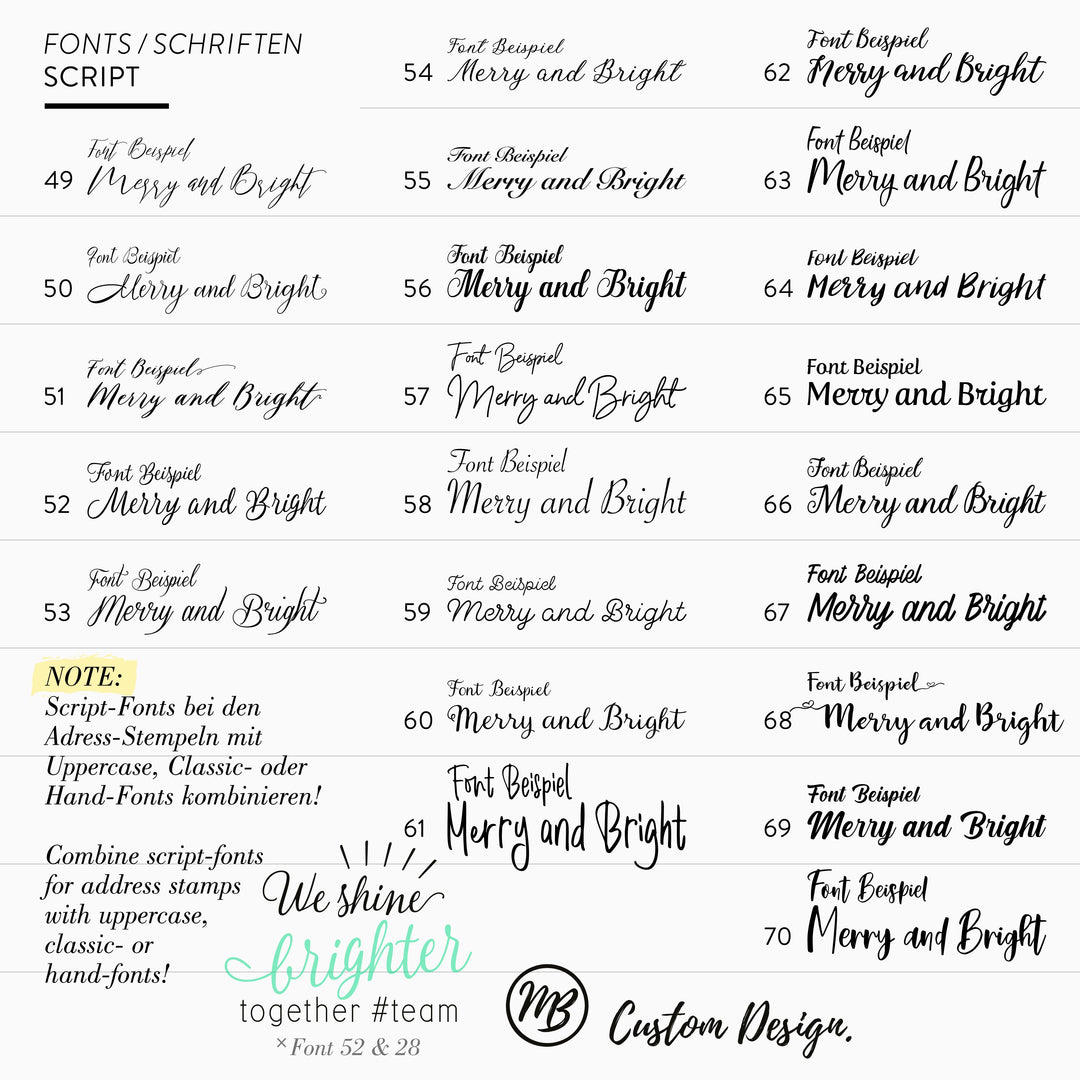 FONTS / SCHRIFTEN
SCRIPT
49
Font Beispiel
Merry and Bright
50
Font Beispiel
Merry and Bright
51
Font Beispiel
Merry and Bright
52
Font Beispiel
Merry and Bright
53
Font Beispiel
Merry and Bright
NOTE:
Script-Fonts bei den
Adress-Stempeln mit
Uppercase, Classic- oder
Hand-Fonts kombinieren!
Combine script-fonts
for address stamps
with uppercase,
classic- or
hand-fonts!
We shine
brighter
together #team
×Font 52 & 28
54
Font Beispiel
Merry and Bright
55
Font Beispiel
Merry and Bright
56
Font Beispiel
Merry and Bright
57
Font Beispiel
Merry and Bright
58
Font Beispiel
Merry and Bright
59
Font Beispiel
Merry and Bright
60
Font Beispiel
Merry and Bright
61
Font Beispiel
Merry and Bright
62
Font Beispiel
Merry and Bright
63
Font Beispiel
Merry and Bright
64
Font Beispiel
Merry and Bright
65
Font Beispiel
Merry and Bright
66
Font Beispiel
Merry and Bright
67
Font Beispiel
Merry and Bright
68
Font Beispiel
Merry and Bright
69
Font Beispiel
Merry and Bright
70
Font Beispiel
Merry and Bright
MB
Custom Design.